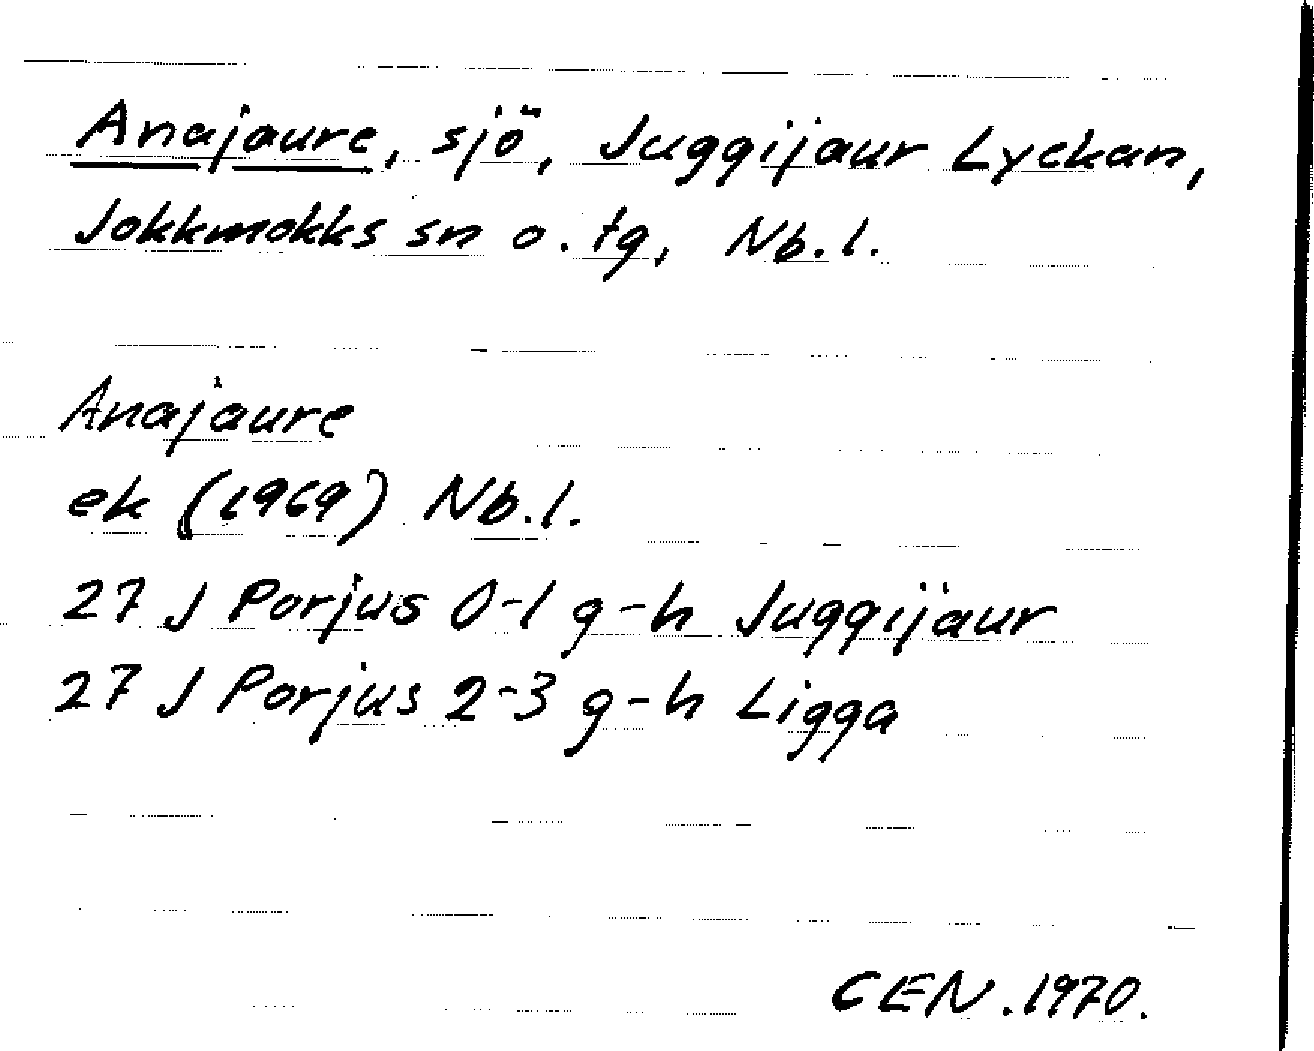 Anajaure, sjö, Juggijaur Lyckan,
Jokkmokks sn o. tg, Nb.l.
Anajaure
ek (1969) Nb.l.
27 J Porjus 0-1 g-h Juggijaur
27 J Porjus 2-3 g-h Ligga
CEN. 1970.